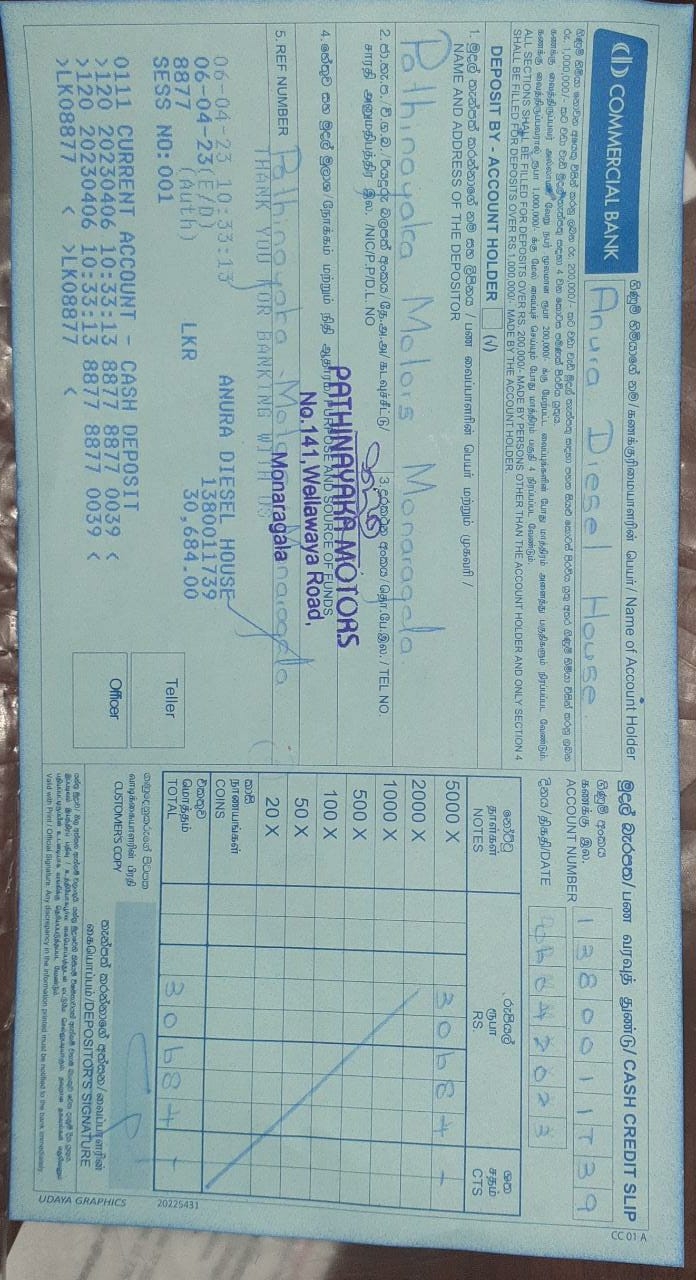 COMMERCIAL BANK
ගිණුම් හිමියාගේ නම / கணக்குரிமையாளரின் பெயர் / Name of Account Holder
Anura Diesel House
ALL SECTIONS SHALL BE FILLED FOR DEPOSITS OVER RS. 200,000/- MADE BY PERSONS OTHER THAN THE ACCOUNT HOLDER AND ONLY SECTION 4
SHALL BE FILLED FOR DEPOSITS OVER RS 1,000,000/- MADE BY THE ACCOUNT HOLDER.
DEPOSIT BY - ACCOUNT HOLDER (√)
1. මුදල් තැන්පත් කරන්නාගේ නම සහ ලිපිනය / பண வைப்பாளரின் பெயர் மற்றும் முகவரி /
NAME AND ADDRESS OF THE DEPOSITOR
Pathinayaka Motors Monaragala.
2. ජා.හැ.ප. / வி.
சாரதி அனுமதிப்பத்திர இல. /NIC/P.P/D.L. NO
3. දුරකථන අංකය /தொ.பே.இல. / TEL NO.
4. PURPOSE AND SOURCE OF FUNDS
PATHINAYAKA MOTORS
No.141, Wellawaya Road,
Monaragala
5. REF NUMBER Pathinayaka Motors Monaragala
THANK YOU FOR BANKING WITH US
06-04-23 10:33:13 ANURA DIESEL HOUSE
06-04-23(E/D) 1380011739
8877 (Auth) LKR 30,684.00
SESS NO:001
0111 CURRENT ACCOUNT - CASH DEPOSIT
>120 20230406 10:33:13 8877 8877 0039 <
>120 20230406 10:33:13 8877 8877 0039 <
>LK08877 < >LK08877 <
Teller
Officer
මුදල් බැරපත / பண வரவுத் துண்டு / CASH CREDIT SLIP
CC 01 A
ගිණුම් අංකය
கணக்கு இல.
ACCOUNT NUMBER 1380011739
දිනය / திகதி / DATE 06042023
නෝට්ටු
தாள்கள்
NOTES
රුපියල්
ரூபா
RS.
ශත
சதம்
CTS
5000 X 30684 -
2000 X
1000 X
500 X
100 X
50 X
20 X
කාසි
நாணயங்கள்
COINS
එකතුව
மொத்தம்
TOTAL 30684 -
ගනුදෙනුකරුගේ පිටපත
வாடிக்கையாளரின் பிரதி
CUSTOMER'S COPY
තැන්පත් කරන්නාගේ අත්සන / வைப்பாளரின்
கையொப்பம் / DEPOSITOR'S SIGNATURE
Valid with Print / Official Signature. Any discrepancy in the information printed must be notified to the bank immediately.
UDAYA GRAPHICS 20225431